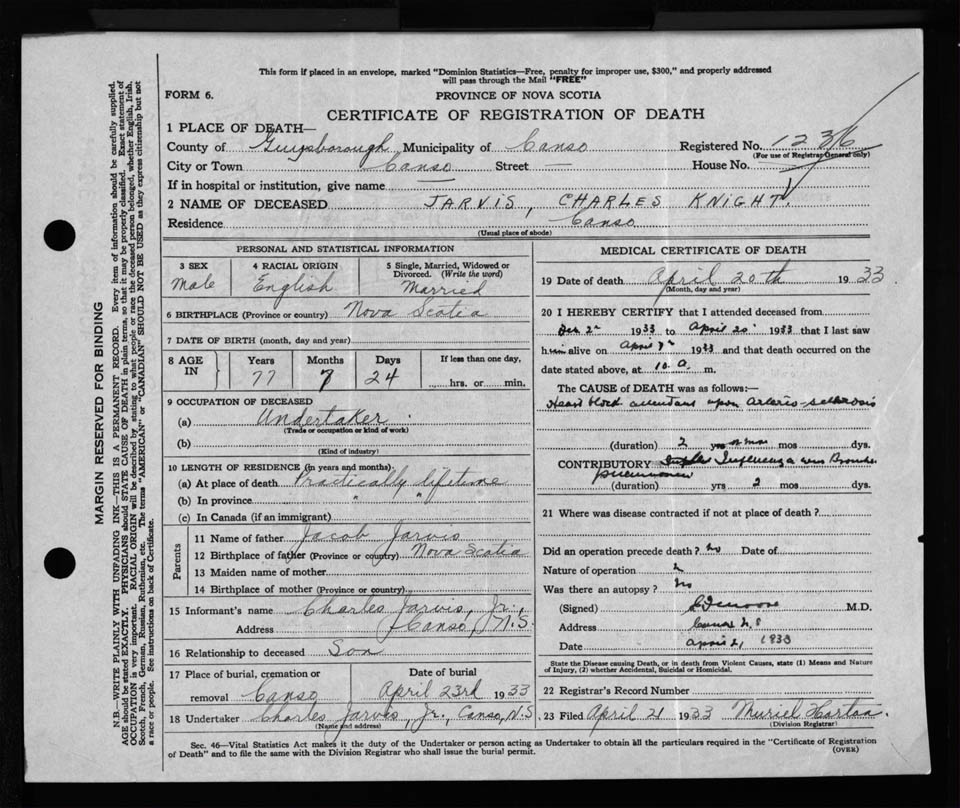 This form if placed in an envelope, marked "Dominion Statistics—Free, penalty for improper use, $300," and properly addressed
will pass through the Mail "FREE"
FORM 6.
PROVINCE OF NOVA SCOTIA
CERTIFICATE OF REGISTRATION OF DEATH
1 PLACE OF DEATH—
County of Guysborough Municipality of Canso Registered No. 1236
(For use of Registrar General only)
City or Town Canso Street House No.
If in hospital or institution, give name
2 NAME OF DECEASED JARVIS, CHARLES KNIGHT.
Residence Canso
(Usual place of abode)
PERSONAL AND STATISTICAL INFORMATION
3 SEX 4 RACIAL ORIGIN 5 Single, Married, Widowed or
Divorced. (Write the word)
Male English Married
6 BIRTHPLACE (Province or country) Nova Scotia
7 DATE OF BIRTH (month, day and year)
8 AGE IN Years Months Days If less than one day,
77 7 24 hrs. or min.
9 OCCUPATION OF DECEASED
(a) Undertaker.
(Trade or occupation or kind of work)
(b)
(Kind of industry)
10 LENGTH OF RESIDENCE (in years and months)
(a) At place of death Practically lifetime
(b) In province " "
(c) In Canada (if an immigrant)
Parents
11 Name of father Jacob Jarvis
12 Birthplace of father (Province or country) Nova Scotia
13 Maiden name of mother
14 Birthplace of mother (Province or country)
15 Informant's name Charles Jarvis, Jr.,
Address Canso, N.S.
16 Relationship to deceased Son
17 Place of burial, cremation or Date of burial
removal Canso April 23rd 1933
18 Undertaker Charles Jarvis, Jr., Canso, N.S
(Name and address)
MEDICAL CERTIFICATE OF DEATH
19 Date of death April 20th 1933
(Month, day and year)
20 I HEREBY CERTIFY that I attended deceased from
1933 to April 20 1933 that I last saw
him alive on April 1933 and that death occurred on the
date stated above, at 10 a. m.
The CAUSE of DEATH was as follows:—
Heart block attendant upon Arterio-sclerosis
(duration) 2 yrs mos dys.
CONTRIBUTORY Influenza Broncho
pneumonia
(duration) yrs 2 mos dys.
21 Where was disease contracted if not at place of death?
Did an operation precede death? no Date of
Nature of operation
Was there an autopsy? No
(Signed) M.D.
Address Canso N.S
Date April 21 1933
State the Disease causing Death, or in death from Violent Causes, state (1) Means and Nature
of Injury, (2) whether Accidental, Suicidal or Homicidal.
22 Registrar's Record Number
23 Filed April 21 1933 Muriel
(Division Registrar)
Sec. 46—Vital Statistics Act makes it the duty of the Undertaker or person acting as Undertaker to obtain all the particulars required in the "Certificate of Registration
of Death" and to file the same with the Division Registrar who shall issue the burial permit.
(OVER)
MARGIN RESERVED FOR BINDING
N.B.—WRITE PLAINLY WITH UNFADING INK—THIS IS A PERMANENT RECORD. Every item of information should be carefully supplied.
AGE should be stated EXACTLY. PHYSICIANS should STATE CAUSE OF DEATH in plain terms, so that it may be properly classified. Exact statement of
OCCUPATION is very important. RACIAL ORIGIN will be described by stating to what people or race the deceased person belonged, whether English, Irish,
Scotch, French, German, Russian, Ruthenian, etc. The terms "AMERICAN" or "CANADIAN" SHOULD NOT BE USED as they express citizenship but not
a race or people. See instructions on back of Certificate.